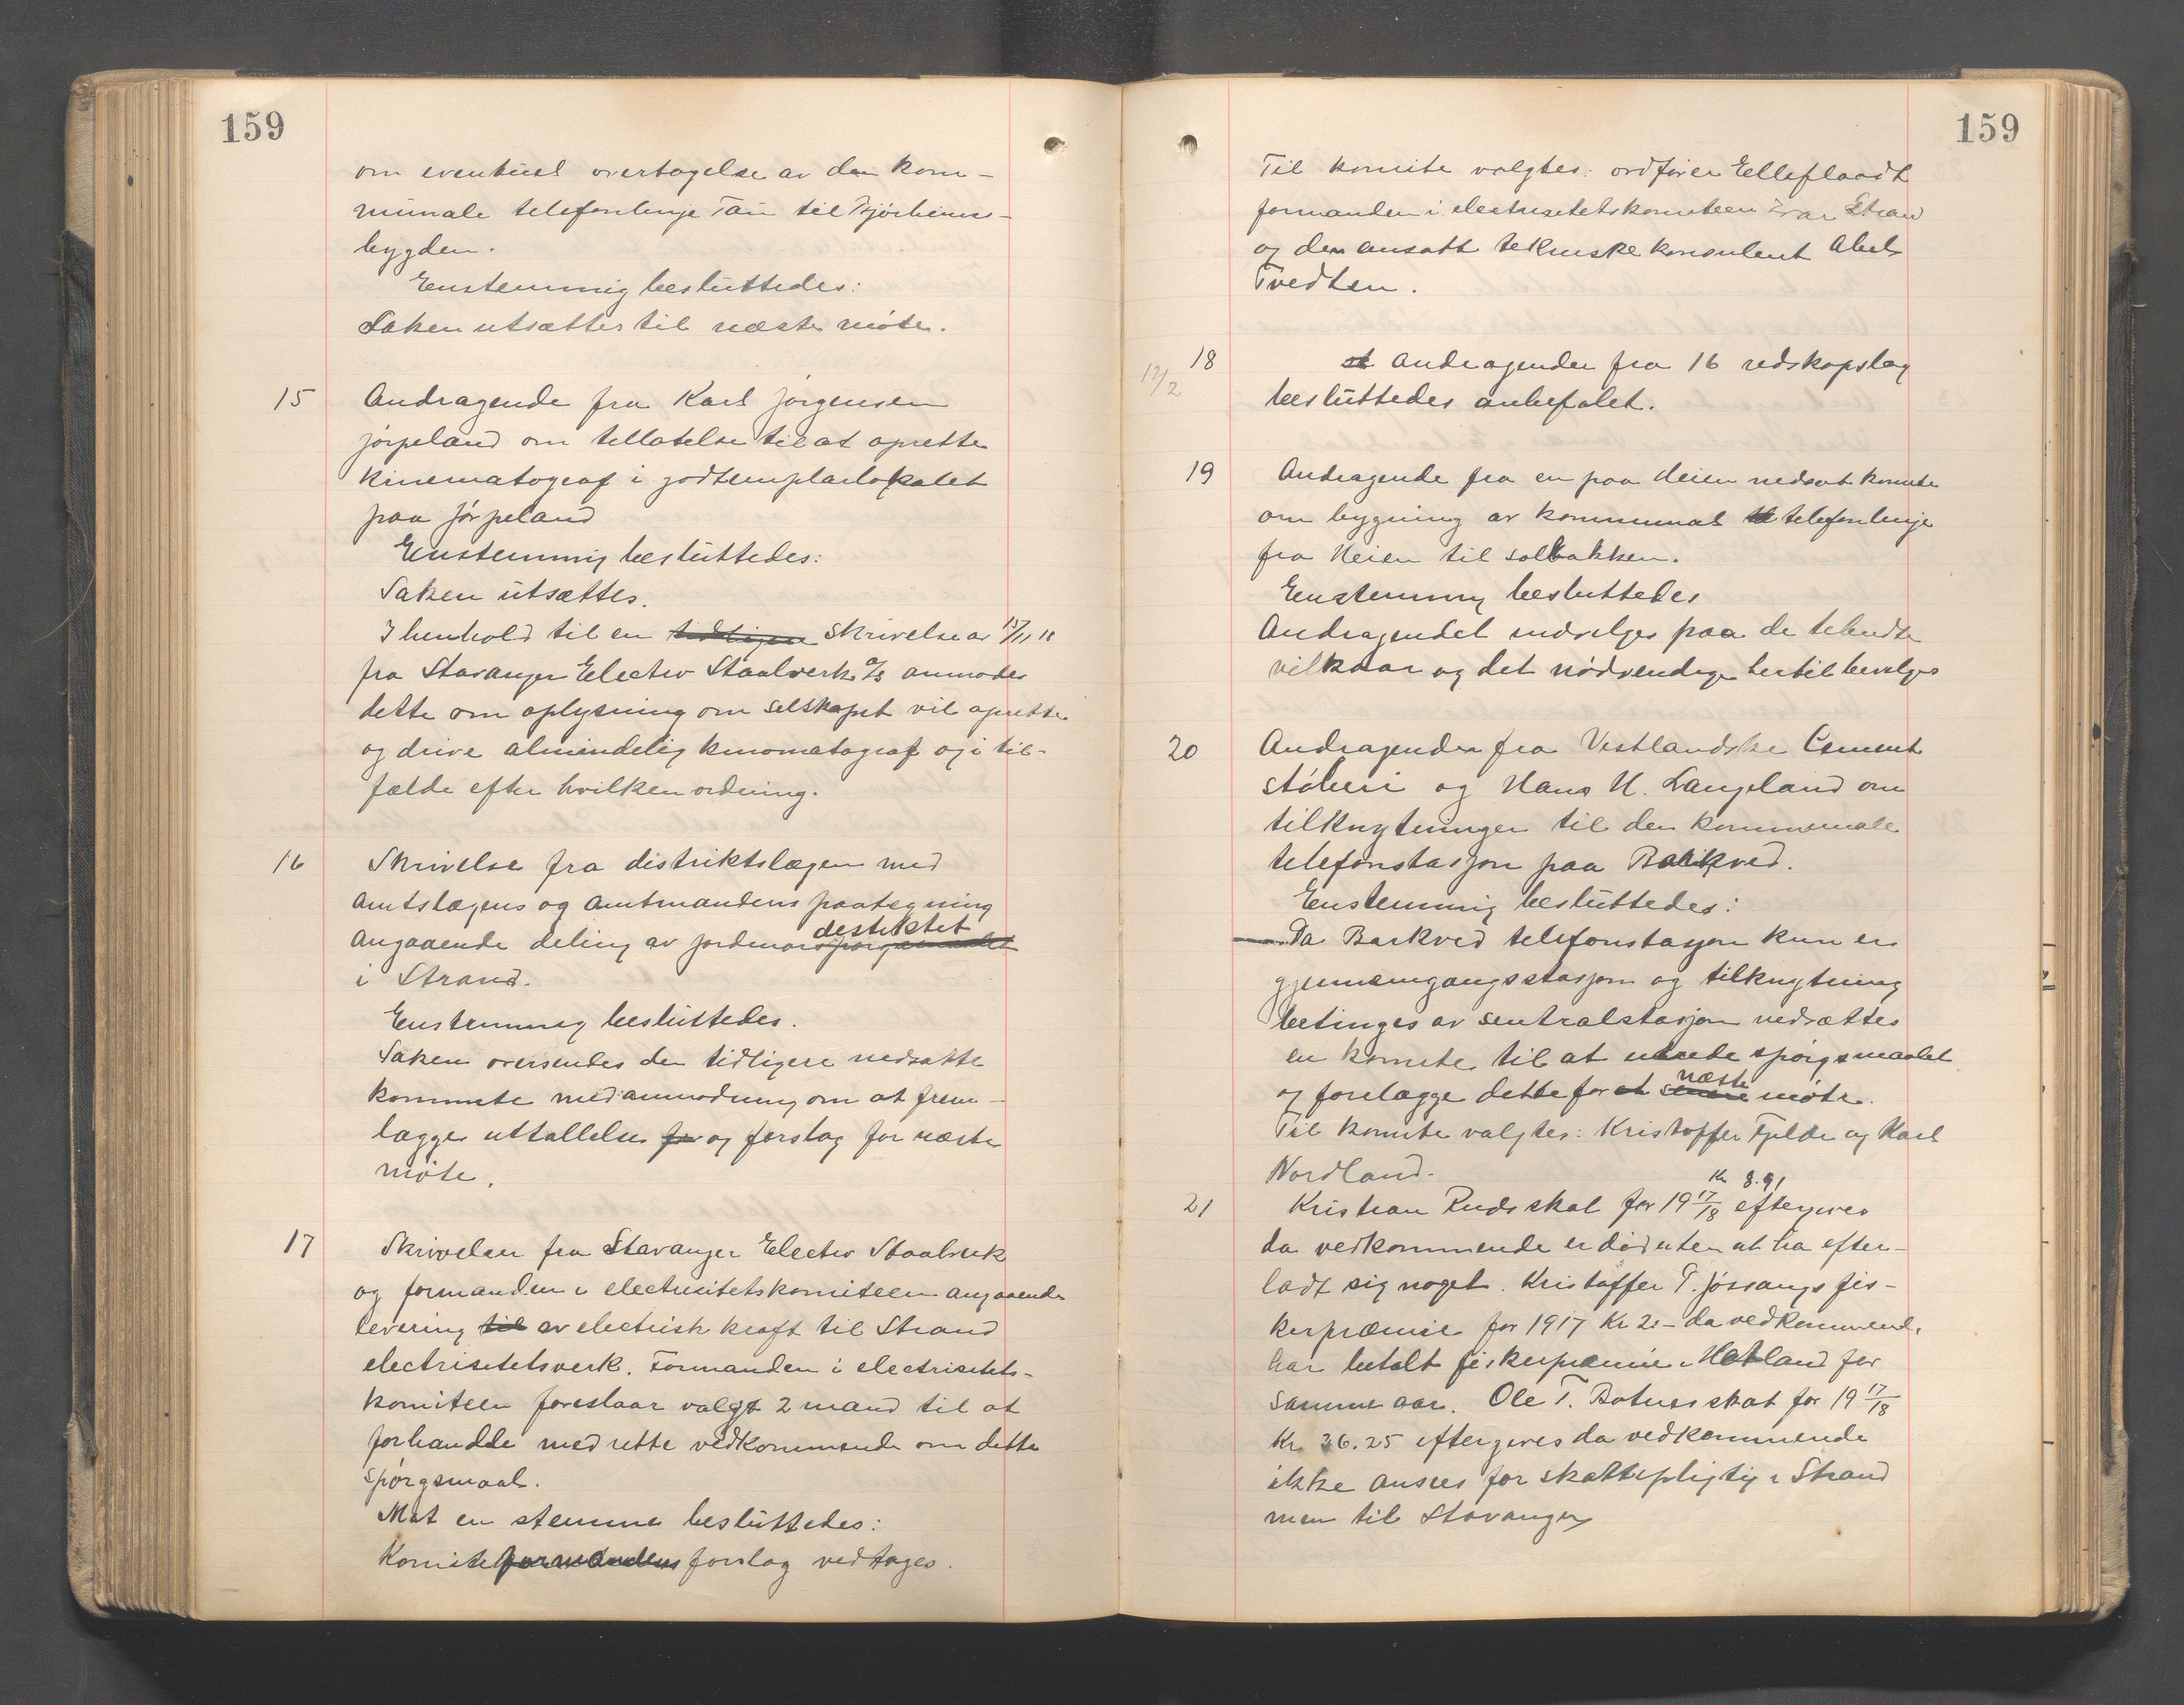 159
om eventuel overtagelse av den kom-
munale telefonlinje Tau til Bjørheims-
bygden.
Enstemmig besluttedes:
Saken utsættes til næste møte.
15 Andragende fra Karl Jørgensen
Jørpeland om tillatelse til at oprette
kinematograf i godtemplarlokalet
paa Jørpeland
Enstemmig besluttedes:
Saken utsættes.
I henhold til en tidligere skrivelse av 15/11 18
fra Stavanger Electro Staalverk A/S anmodes
dette om oplysning om selskapet vil oprette
og drive almindelig kinomatograf og i til-
fælde efter hvilken ordning.
16 Skrivelse fra distriktslægen med
Amtslægens og Amtmandens paategning
destriktet
angaaende deling av jordmorspørgsmaalet
i Strand.
Enstemmig besluttedes.
Saken oversendes den tidligere nedsatte
kommite med anmodning om at frem-
lægge uttallelse for og forslag for næste
møte.
17 Skrivelser fra Stavanger Electro Staalverk
og formanden i electrisitetskomiteen angaaende
levering til av electrisk kraft til Strand
electrisitetsverk. Formanden i electrisitets-
komiteen foreslaar valgt 2 mand til at
forhandle med rette vedkommende om dette
spørgsmaal.
Mot en stemme besluttedes:
Komiteformandens forslag vedtages.
159
Til komite valgtes: ordfører Elleflaadt
formanden i electrisitetskomiteen Ivar Strand
og den ansatt tekniske konsulent Abel
Tvedten.
18 12/2 et Andragender fra 16 redskapslag
besluttedes anbefalet.
19 Andragende fra en paa Heien nedsat komite
om bygning av kommunal til telefonlinje
fra Heien til Solbakken.
Enstemmig besluttedes
Andragendet indvilges paa de tilbudte
vilkaar og det nødvendige hertil bevilges
20 Andragender fra Vestlandske Cement
støberi og Hans H. Langeland om
tilknytninger til den kommunale
telefonstasjon paa Barkved.
Enstemmig besluttedes:
Da Barkved telefonstasjon kun er
gjennemgangsstasjon og tilknytning
betinges av sentralstasjon nedsættes
en komite til at utrede spørgsmaalet
næste
og forelægge dette for et senere møte.
Til komite valgtes: Kristoffer Fjelde og Karl
Nordland.
Kr 8.91
21 Kristian Ruds skat for 19 17/18 eftergives
da vedkommende er død uten at ha efter-
ladt sig noget. Kristoffer T. Jøssangs fis-
kerpræmie for 1917 Kr 2.- da vedkommende
har betalt fiskerpræmie i Hetland for
samme aar. Ole T. Botnes skat for 19 17/18
Kr. 36.25 eftergives da vedkommende
ikke ansees for skattepligtig i Strand
men til Stavanger